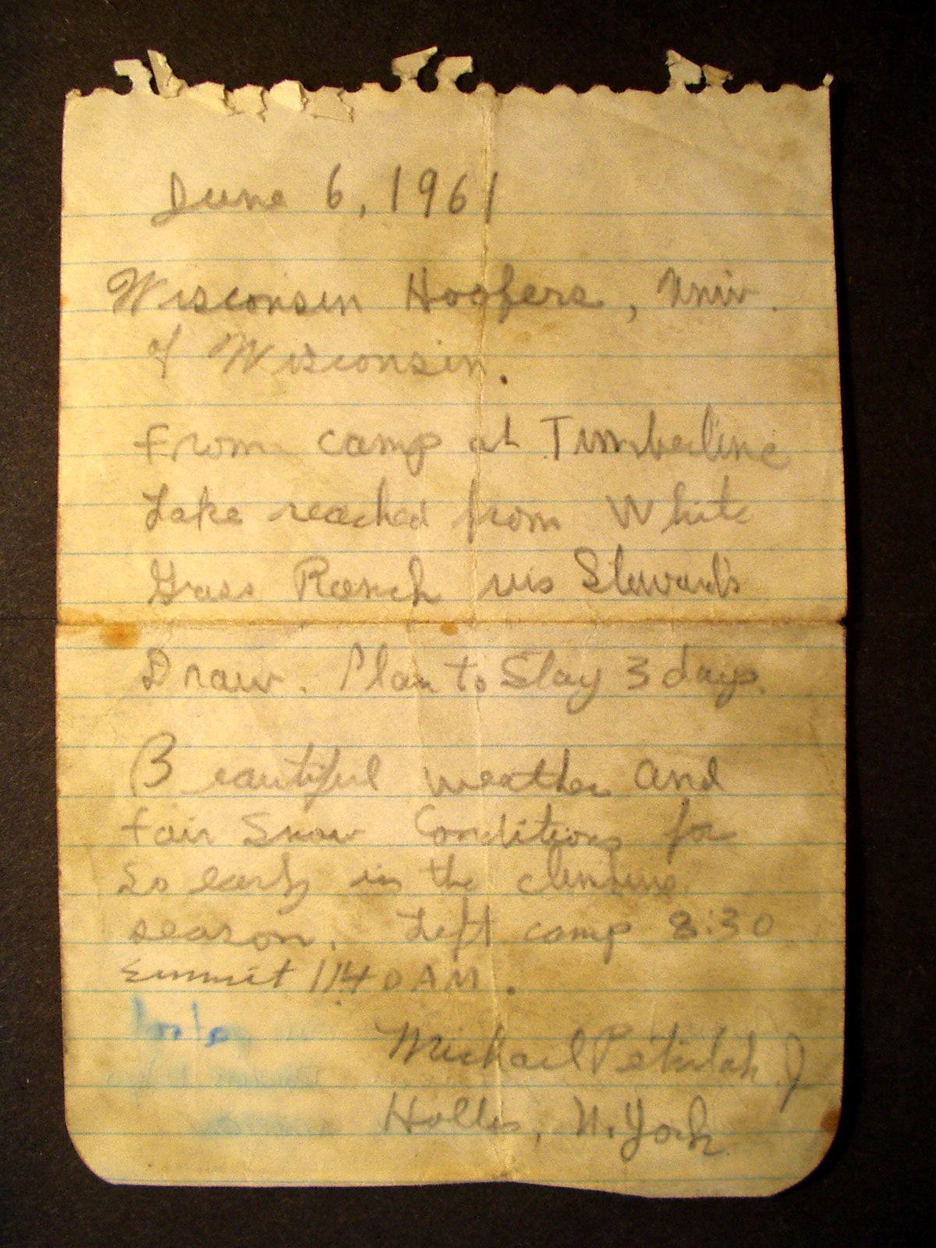 June 6, 1961
Wisconsin Hoofers, Univ.
of Wisconsin.
From camp at Timberline
Lake reached from White
Grass Ranch via Steward's
Draw. Plan to Stay 3 days.
Beautiful weather and
fair Snow Conditions for
So early in the climbing
season. Left camp 8:30
Summit 1140 AM.
Michael J
Hollis, N. York